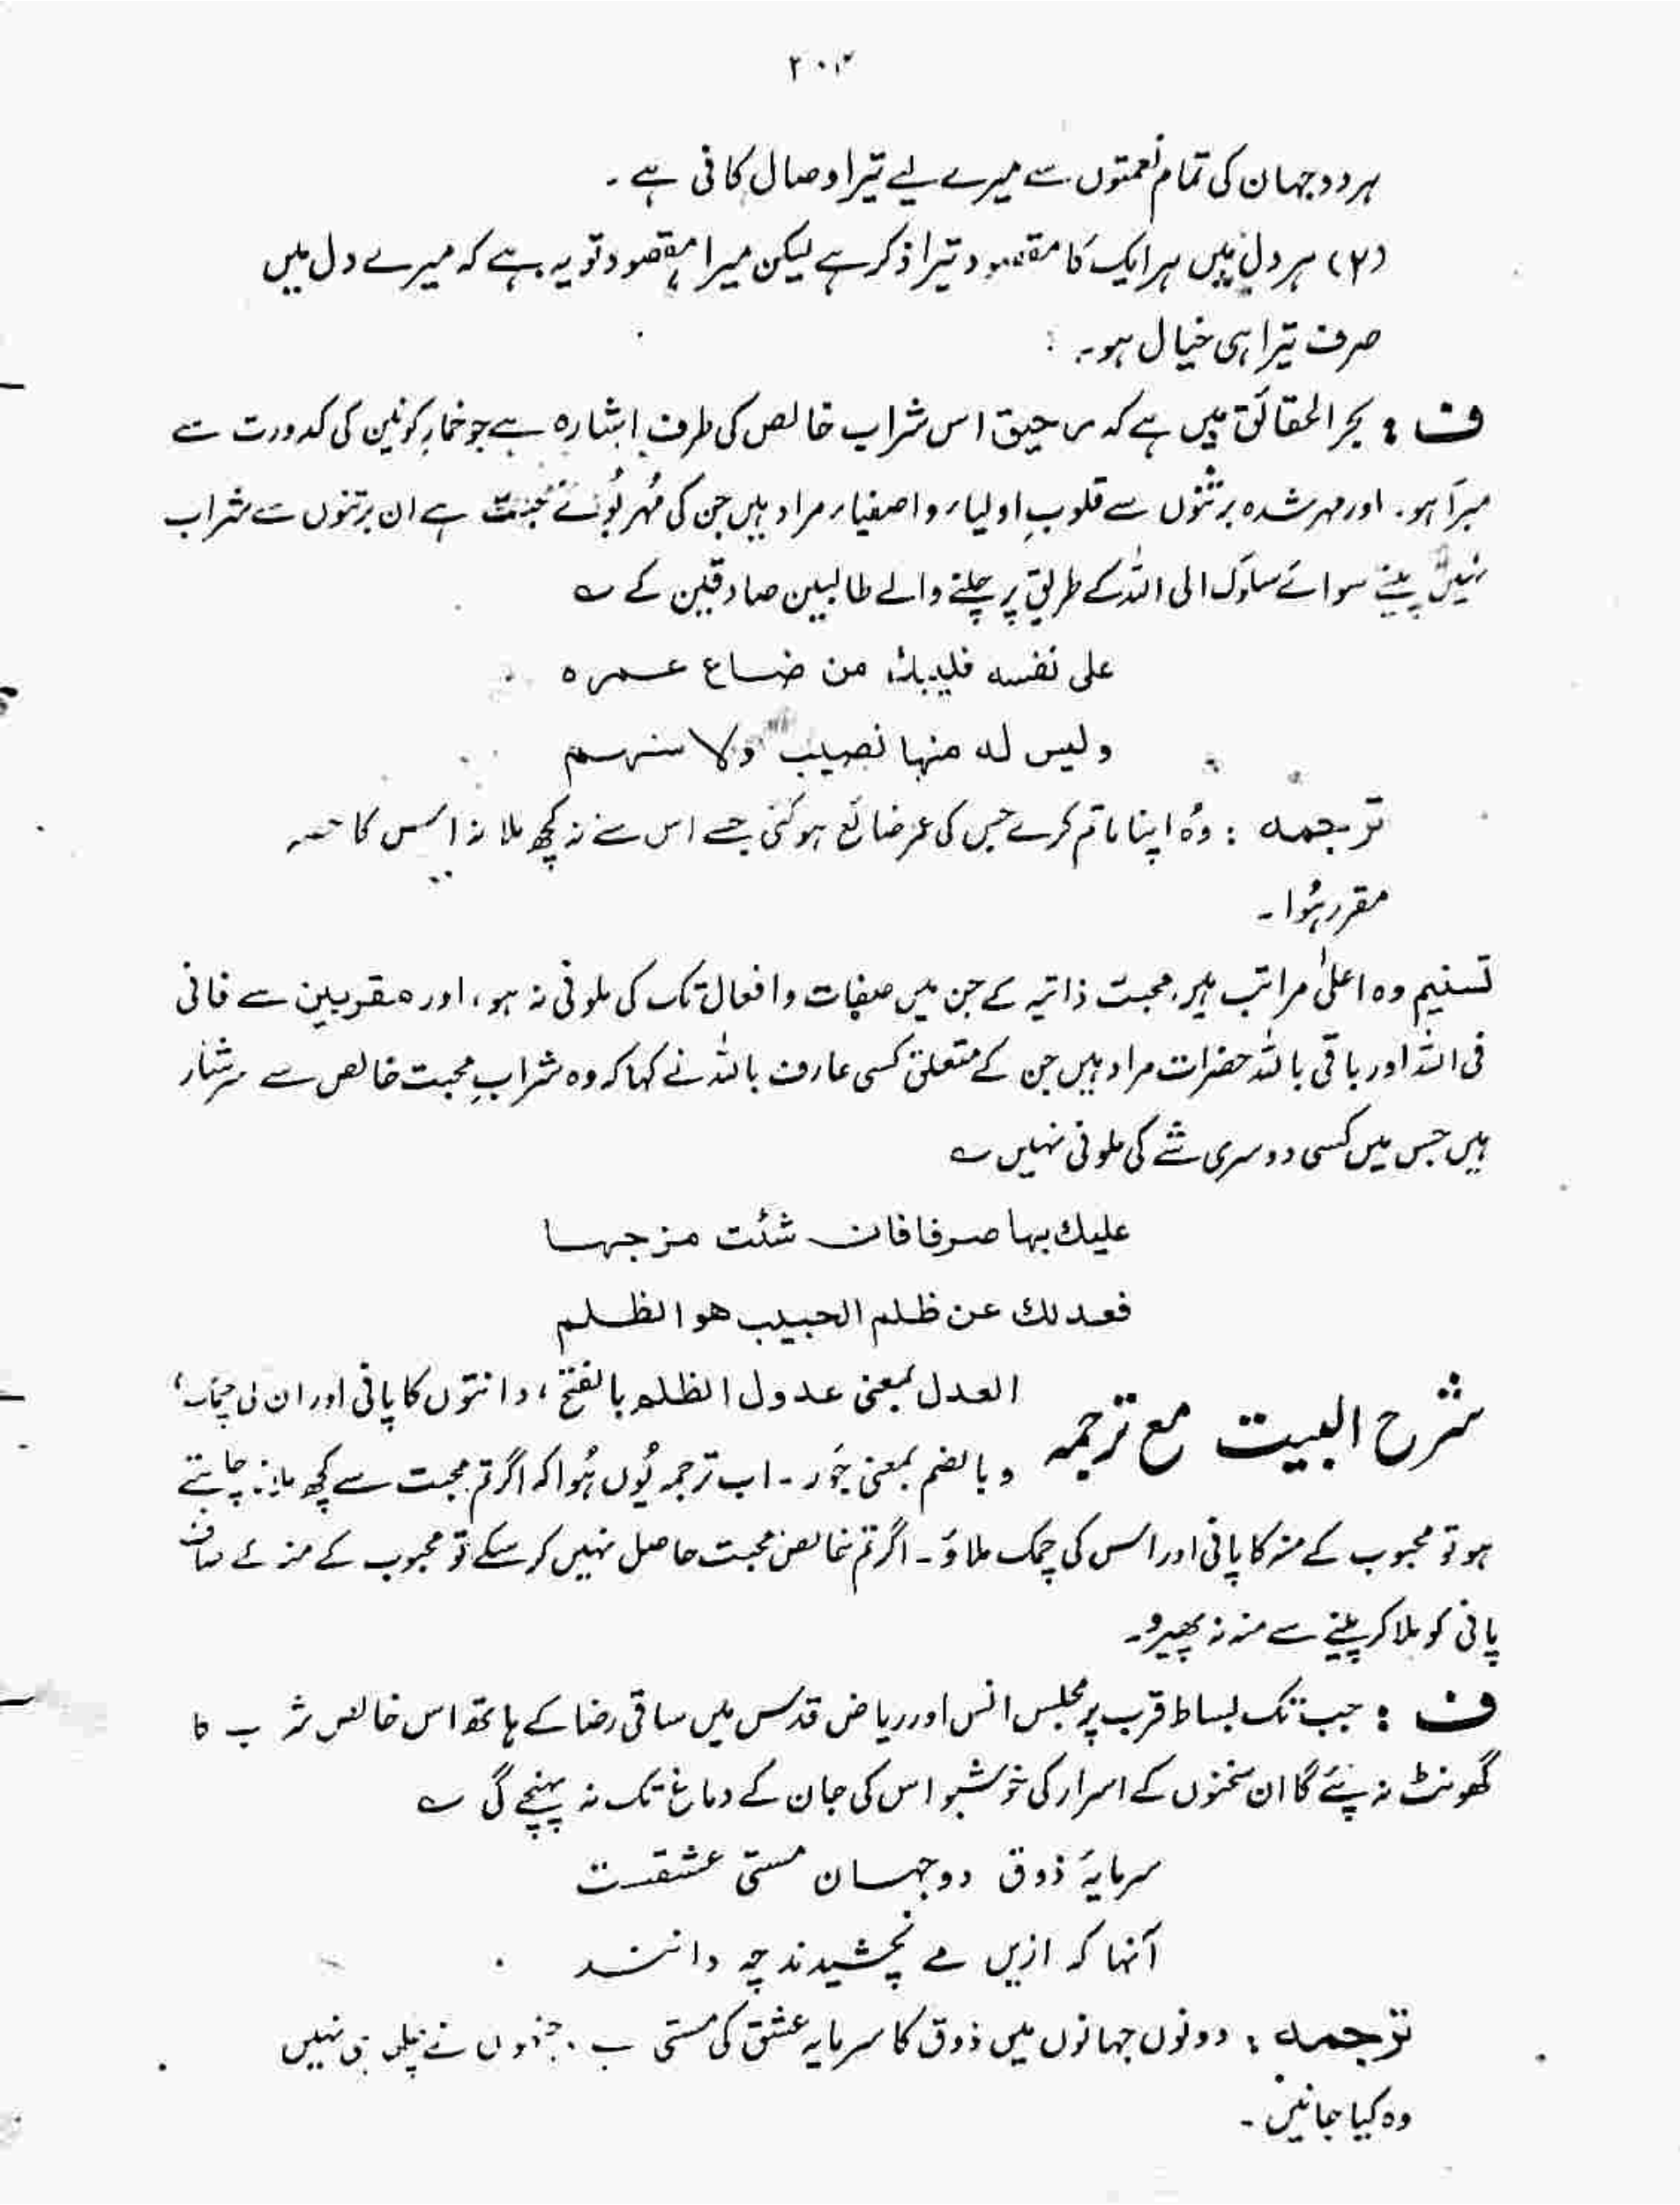 ۲۰۲
ہر دو جہان کی تمام نعمتوں سے میرے لیے تیرا وصال کافی ہے ۔
(۲) ہر دل میں ہر ایک کا مقصود تیرا ذکر ہے لیکن میرا مقصود تو یہ ہے کہ میرے دل میں
صرف تیرا ہی خیال ہو۔
ف : بحر الحقائق میں ہے کہ رحیق اس شراب خالص کی طرف اشارہ ہے جو خمارِ کونین کی کدورت سے
مبرّا ہو۔ اور مہر شدہ برتنوں سے قلوبِ اولیاء و اصفیاء مراد ہیں جن کی مُہر بُوئے محبت ہے ان برتنوں سے شراب
نہیں پیتے سوائے سلوک الی اللہ کے طریق پر چلنے والے طالبین صادقین کے ؎
علی نفسه فلیبك من ضاع عمره
ولیس له منها نصیب ولا سهم
ترجمہ : وُہ اپنا ماتم کرے جس کی عمر ضائع ہو گئی جسے اس سے نہ کچھ ملا نہ اس کا حصہ
مقرر ہُوا ۔
تسنیم وہ اعلیٰ مراتب ہیں محبت ذاتیہ کے جن میں صفات و افعال تک کی ملونی نہ ہو، اور مقربین سے فانی
فی اللہ اور باقی باللہ حضرات مراد ہیں جن کے متعلق کسی عارف باللہ نے کہا کہ وہ شرابِ محبت خالص سے سرشار
ہیں جس میں کسی دوسری شے کی ملونی نہیں ؎
علیك بها صرفا فان شئت مزجها
فعدلك عن ظلم الحبیب هو الظلم
شرح البیت مع ترجمہ العدل بمعنی عدول الظلم بالفتح ، دانتوں کا پانی اور ان کی چمک ،
و بالضم بمعنی جَور ۔ اب ترجمہ یُوں ہُوا کہ اگر تم محبت سے کچھ ملانا چاہتے
ہو تو محبوب کے منہ کا پانی اور اس کی چمک ملاؤ ۔ اگر تم خالص محبت حاصل نہیں کر سکے تو محبوب کے منہ کے صاف
پانی کو ملا کر پینے سے منہ نہ پھیرو۔
ف : جب تک بساط قرب پر مجلس انس اور ریاض قدس میں ساقی رضا کے ہاتھ اس خالص شراب کا
گھونٹ نہ پئے گا ان سخنوں کے اسرار کی خوشبو اس کی جان کے دماغ تک نہ پہنچے گی ؎
سرمایۂ ذوق دو جہان مستی عشقست
آنہا کہ ازیں مے نچشیدند چہ دانند
ترجمہ : دونوں جہانوں میں ذوق کا سرمایہ عشق کی مستی ہے ۔ جنہوں نے چکھی ہی نہیں
وہ کیا جانیں ۔